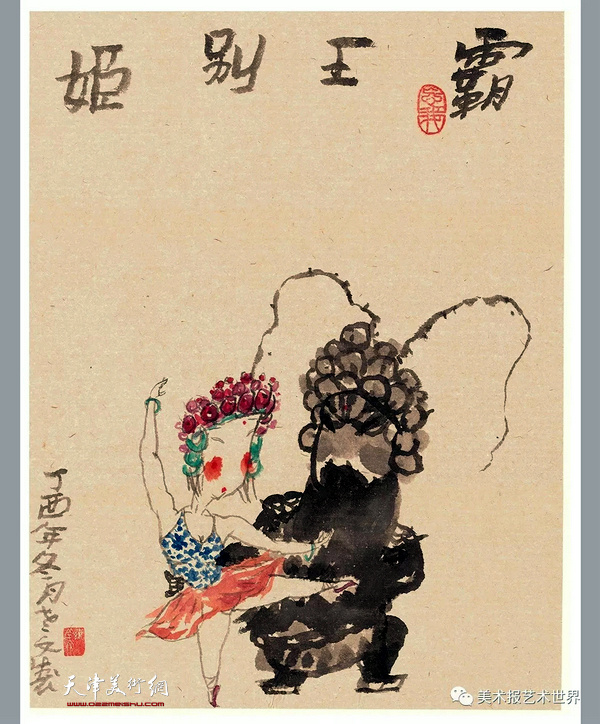 霸王别姬
丁酉年冬月老文
天津美術網
www.022meishu.com
美术报艺术世界